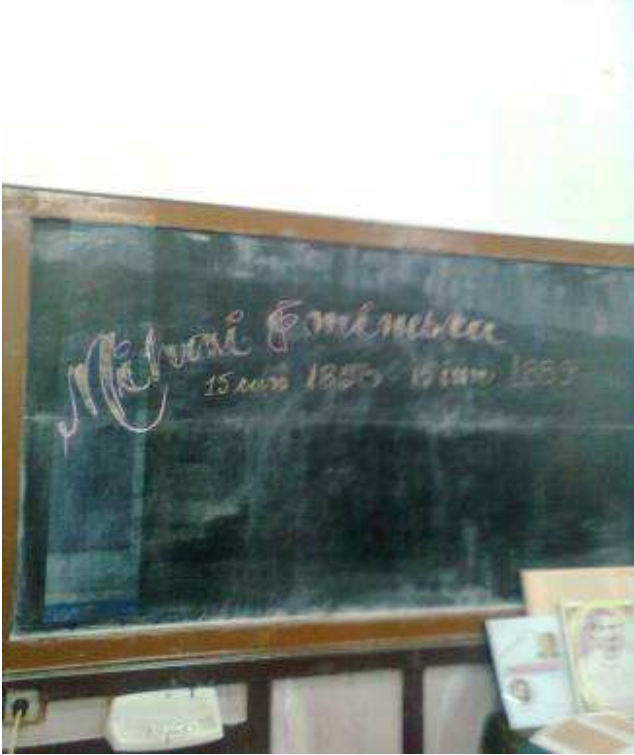 Mihai Eminescu
15 ian 1850 - 15 iun 1889